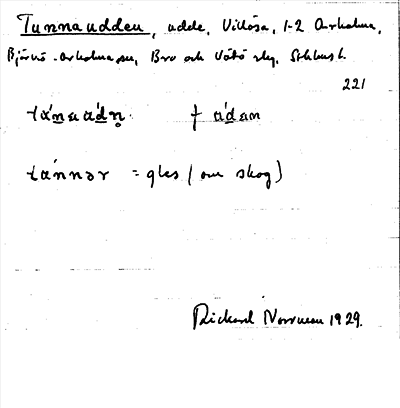 Tunnaudden, udde, Villösa, 1-2 Arholma,
Björkö-Arholma sn, Bro och Vätö skg, Sthlms l.
221
tánaádn̥ ƒ ádan
tánnər = gles (om skog)
Rickard Norrman 1929.